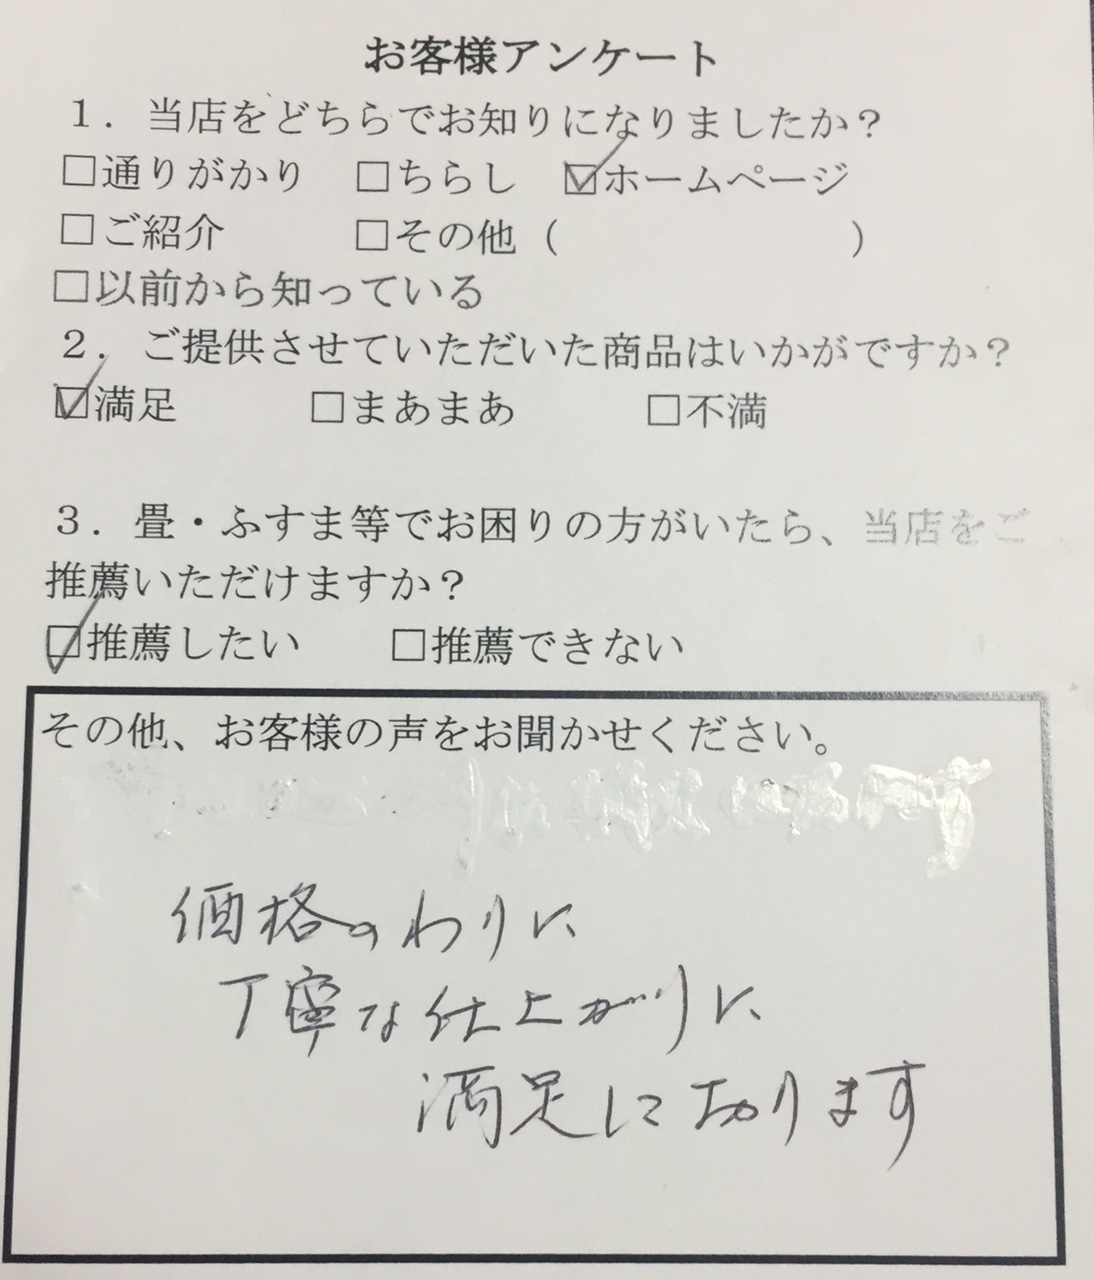 お客様アンケート
１．当店をどちらでお知りになりましたか？
□通りがかり　□ちらし　☑ホームページ
□ご紹介　□その他（　　　　　　　）
□以前から知っている
２．ご提供させていただいた商品はいかがですか？
☑満足　□まあまあ　□不満
３．畳・ふすま等でお困りの方がいたら、当店をご
推薦いただけますか？
☑推薦したい　□推薦できない
その他、お客様の声をお聞かせください。
価格のわりに
丁寧な仕上がりに
満足しております